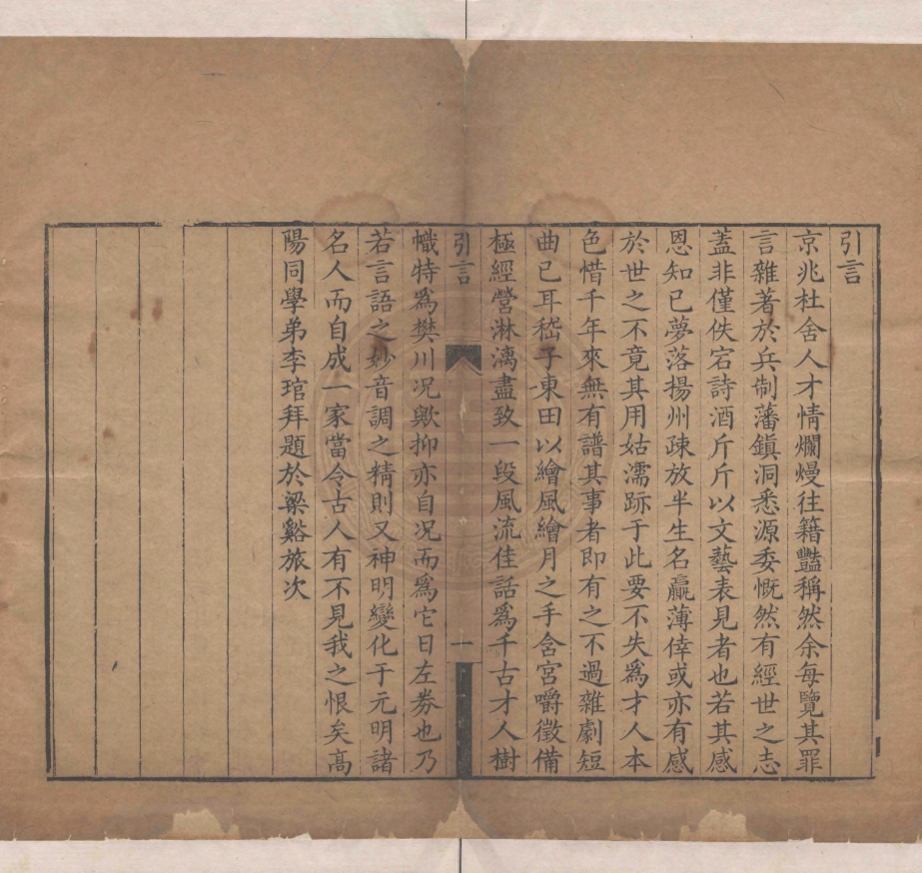 引言
京兆杜舍人才情爛熳往籍豔稱然余每覽其罪
言雜著於兵制藩鎮洞悉源委慨然有經世之志
蓋非僅佚宕詩酒斤斤以文藝表見者也若其感
恩知己夢落揚州疎放半生名贏薄倖或亦有感
於世之不竟其用姑濡跡于此要不失爲才人本
色惜千年來無有譜其事者即有之不過雜劇短
曲已耳嵇子東田以繪風繪月之手含宮嚼徵備
極經營淋漓盡致一段風流佳話爲千古才人樹
引言
一
幟特爲樊川况歟抑亦自况而爲它日左券也乃
若言語之妙音調之精則又神明變化于元明諸
名人而自成一家當令古人有不見我之恨矣高
陽同學弟李琯拜題於梁谿旅次